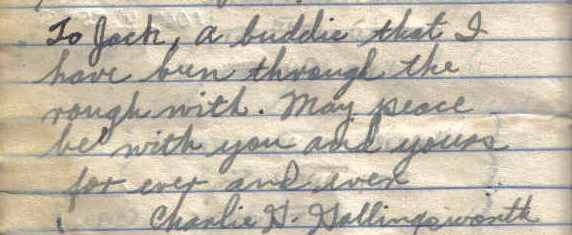 To Jack, a buddie that I
have bun through the
rough with. May peace
be with you and yours
for ever and ever
Charlie H. Hollingsworth